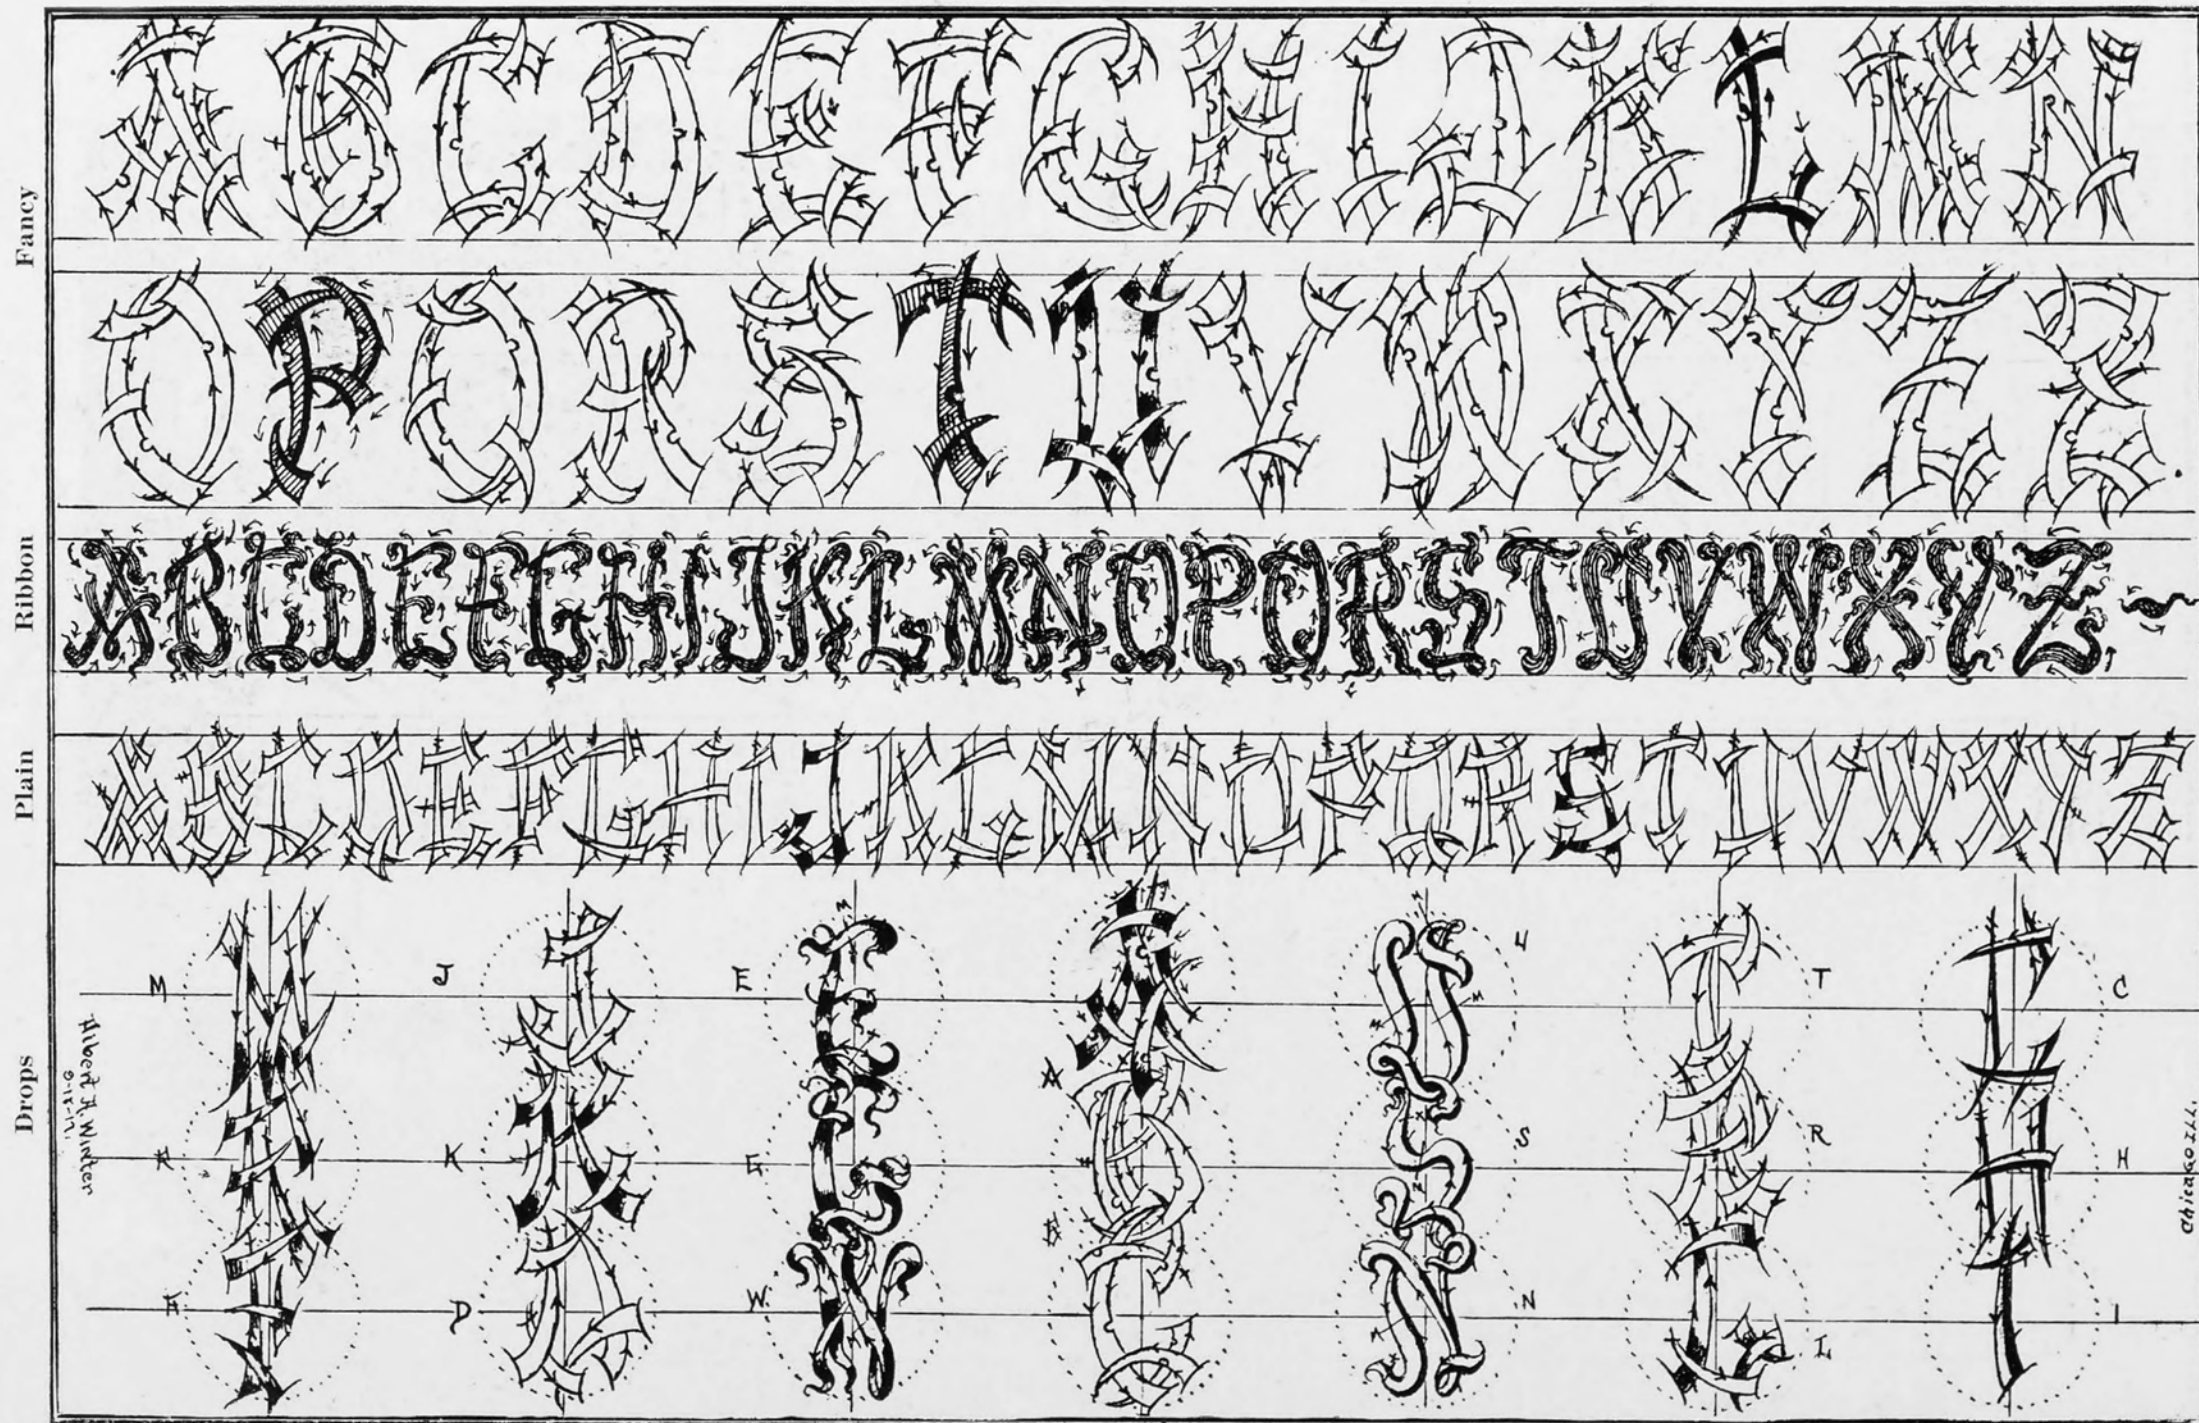 Fancy
A B C D E F G H I J K L M N
O P Q R S T U V W X Y Z &
Ribbon
A B C D E F G H I J K L M N O P Q R S T U V W X Y Z
Plain
A B C D E F G H I J K L M N O P Q R S T U V W X Y Z
Drops
M J E U T C
A
K G S R H
B
D W. N L I
Albert A. Winter
Chicago ILL.